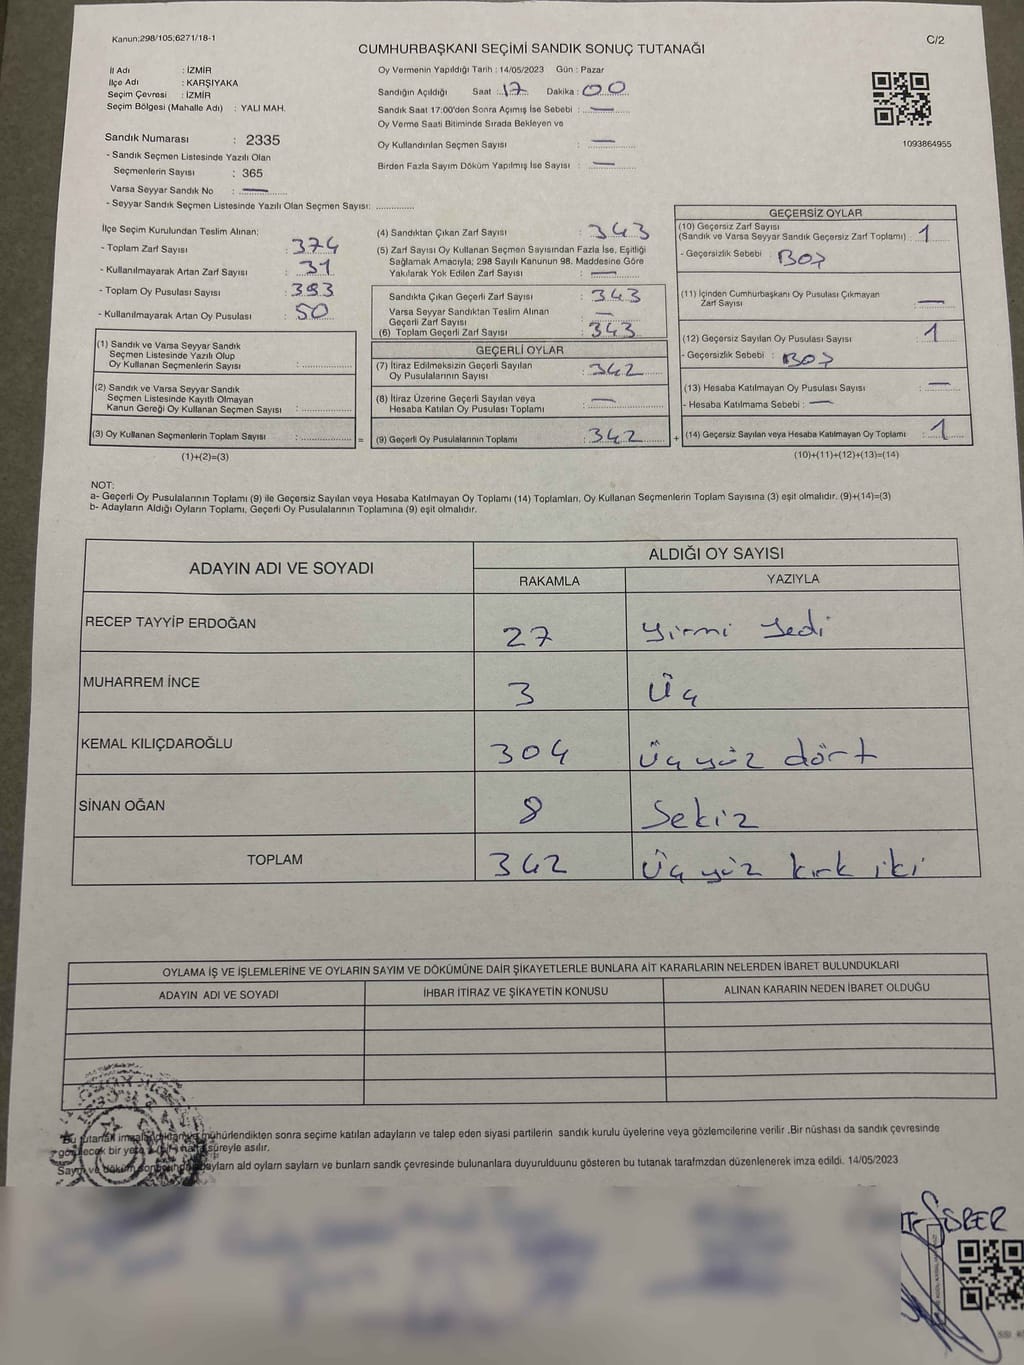 Kanun:298/105;6271/18-1
C/2
CUMHURBAŞKANI SEÇİMİ SANDIK SONUÇ TUTANAĞI
İl Adı : İZMİR
İlçe Adı : KARŞIYAKA
Seçim Çevresi : İZMİR
Seçim Bölgesi (Mahalle Adı) : YALI MAH.
Oy Vermenin Yapıldığı Tarih : 14/05/2023 Gün : Pazar
Sandığın Açıldığı Saat : 17 Dakika : 00
Sandık Saat 17:00'den Sonra Açımış İse Sebebi : —
Oy Verme Saati Bitiminde Sırada Bekleyen ve
Oy Kullandırılan Seçmen Sayısı : —
Birden Fazla Sayım Döküm Yapılmış İse Sayısı : —
1093864955
Sandık Numarası : 2335
- Sandık Seçmen Listesinde Yazılı Olan
Seçmenlerin Sayısı : 365
Varsa Seyyar Sandık No : —
- Seyyar Sandık Seçmen Listesinde Yazılı Olan Seçmen Sayısı:
İlçe Seçim Kurulundan Teslim Alınan;
- Toplam Zarf Sayısı : 374
- Kullanılmayarak Artan Zarf Sayısı : 31
- Toplam Oy Pusulası Sayısı : 393
- Kullanılmayarak Artan Oy Pusulası : 50
(1) Sandık ve Varsa Seyyar Sandık
Seçmen Listesinde Yazılı Olup
Oy Kullanan Seçmenlerin Sayısı :
(2) Sandık ve Varsa Seyyar Sandık
Seçmen Listesinde Kayıtlı Olmayan
Kanun Gereği Oy Kullanan Seçmen Sayısı :
(3) Oy Kullanan Seçmenlerin Toplam Sayısı : =
(1)+(2)=(3)
(4) Sandıktan Çıkan Zarf Sayısı : 343
(5) Zarf Sayısı Oy Kullanan Seçmen Sayısından Fazla İse, Eşitliği
Sağlamak Amacıyla; 298 Sayılı Kanunun 98. Maddesine Göre
Yakılarak Yok Edilen Zarf Sayısı : —
Sandıkta Çıkan Geçerli Zarf Sayısı : 343
Varsa Seyyar Sandıktan Teslim Alınan
Geçerli Zarf Sayısı : —
(6) Toplam Geçerli Zarf Sayısı : 343
GEÇERLİ OYLAR
(7) İtiraz Edilmeksizin Geçerli Sayılan
Oy Pusulalarının Sayısı : 342
(8) İtiraz Üzerine Geçerli Sayılan veya
Hesaba Katılan Oy Pusulası Toplamı : —
(9) Geçerli Oy Pusulalarının Toplamı : 342 +
GEÇERSİZ OYLAR
(10) Geçersiz Zarf Sayısı
(Sandık ve Varsa Seyyar Sandık Geçersiz Zarf Toplamı) : 1
- Geçersizlik Sebebi : BOŞ
(11) İçinden Cumhurbaşkanı Oy Pusulası Çıkmayan
Zarf Sayısı : —
(12) Geçersiz Sayılan Oy Pusulası Sayısı : 1
- Geçersizlik Sebebi : BOŞ
(13) Hesaba Katılmayan Oy Pusulası Sayısı : —
- Hesaba Katılmama Sebebi : —
(14) Geçersiz Sayılan veya Hesaba Katılmayan Oy Toplamı : 1
(10)+(11)+(12)+(13)=(14)
NOT:
a- Geçerli Oy Pusulalarının Toplamı (9) ile Geçersiz Sayılan veya Hesaba Katılmayan Oy Toplamı (14) Toplamları, Oy Kullanan Seçmenlerin Toplam Sayısına (3) eşit olmalıdır. (9)+(14)=(3)
b- Adayların Aldığı Oyların Toplamı, Geçerli Oy Pusulalarının Toplamına (9) eşit olmalıdır.
ADAYIN ADI VE SOYADI
ALDIĞI OY SAYISI
RAKAMLA YAZIYLA
RECEP TAYYİP ERDOĞAN 27 Yirmi Yedi
MUHARREM İNCE 3 Üç
KEMAL KILIÇDAROĞLU 304 Üç yüz dört
SİNAN OĞAN 8 Sekiz
TOPLAM 342 Üç yüz kırk iki
OYLAMA İŞ VE İŞLEMLERİNE VE OYLARIN SAYIM VE DÖKÜMÜNE DAİR ŞİKAYETLERLE BUNLARA AİT KARARLARIN NELERDEN İBARET BULUNDUKLARI
ADAYIN ADI VE SOYADI İHBAR İTİRAZ VE ŞİKAYETİN KONUSU ALINAN KARARIN NEDEN İBARET OLDUĞU
Bu tutanak mühürlendikten sonra seçime katılan adayların ve talep eden siyasi partilerin sandık kurulu üyelerine veya gözlemcilerine verilir .Bir nüshası da sandık çevresinde
bir yere süreyle asılır.
ald oylarn saylarn ve bunlarn sandk çevresinde bulunanlara duyurulduunu gösteren bu tutanak tarafmzdan düzenlenerek imza edildi. 14/05/2023